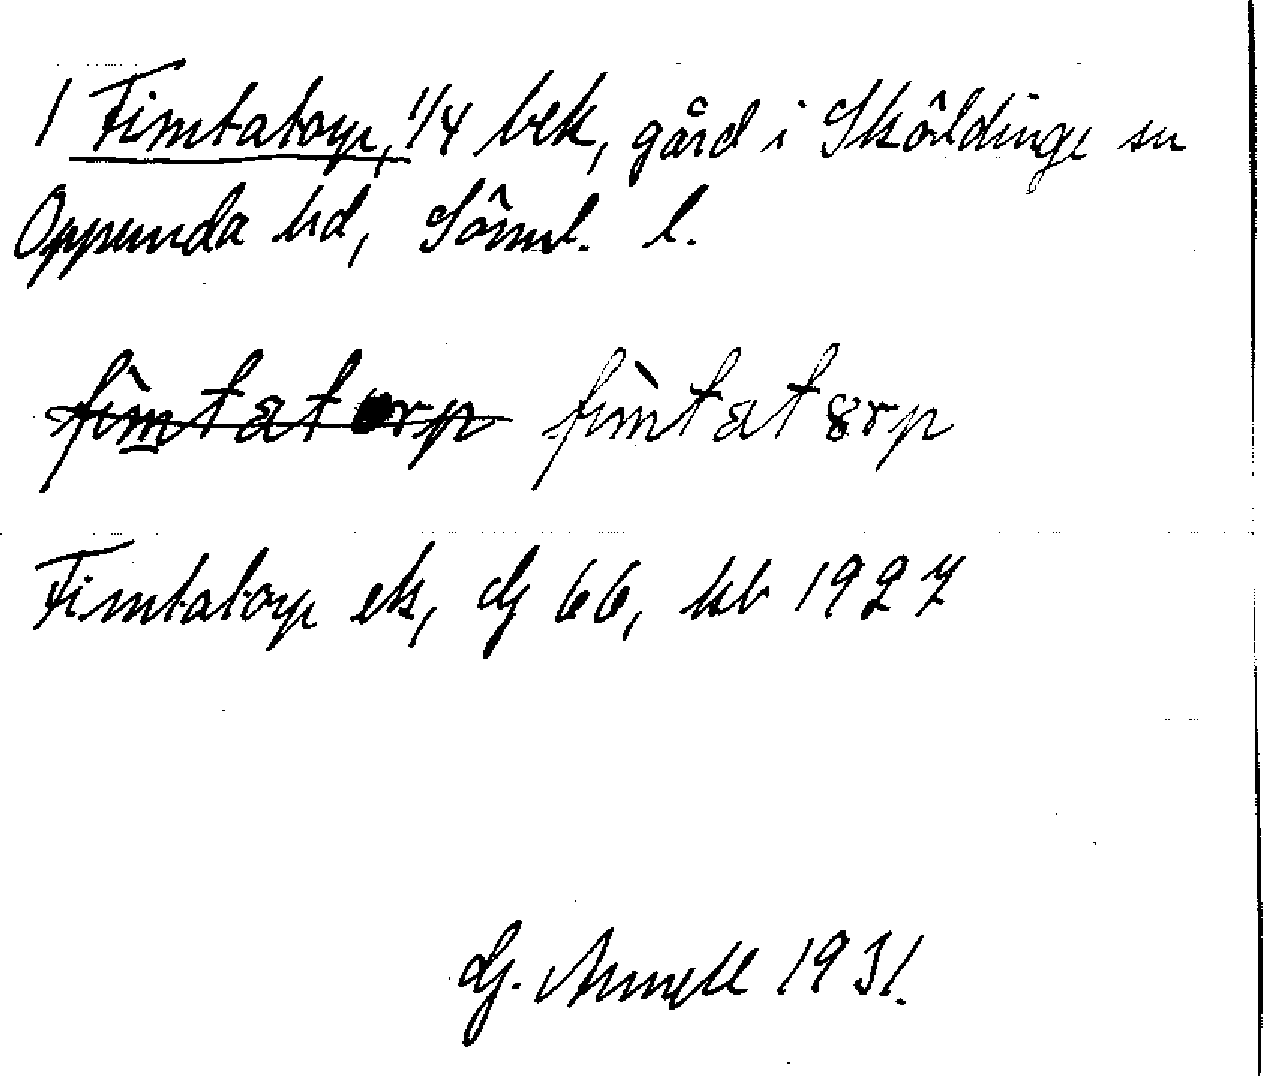 1 Fimtatorp, 1/4 bek, gård i Sköldinge sn
Oppunda hd, Söml. l.
fìmtatorp fìmtat8rp
Fimtatorp ek, dj 66, kb 1927
G. Annell 1931.